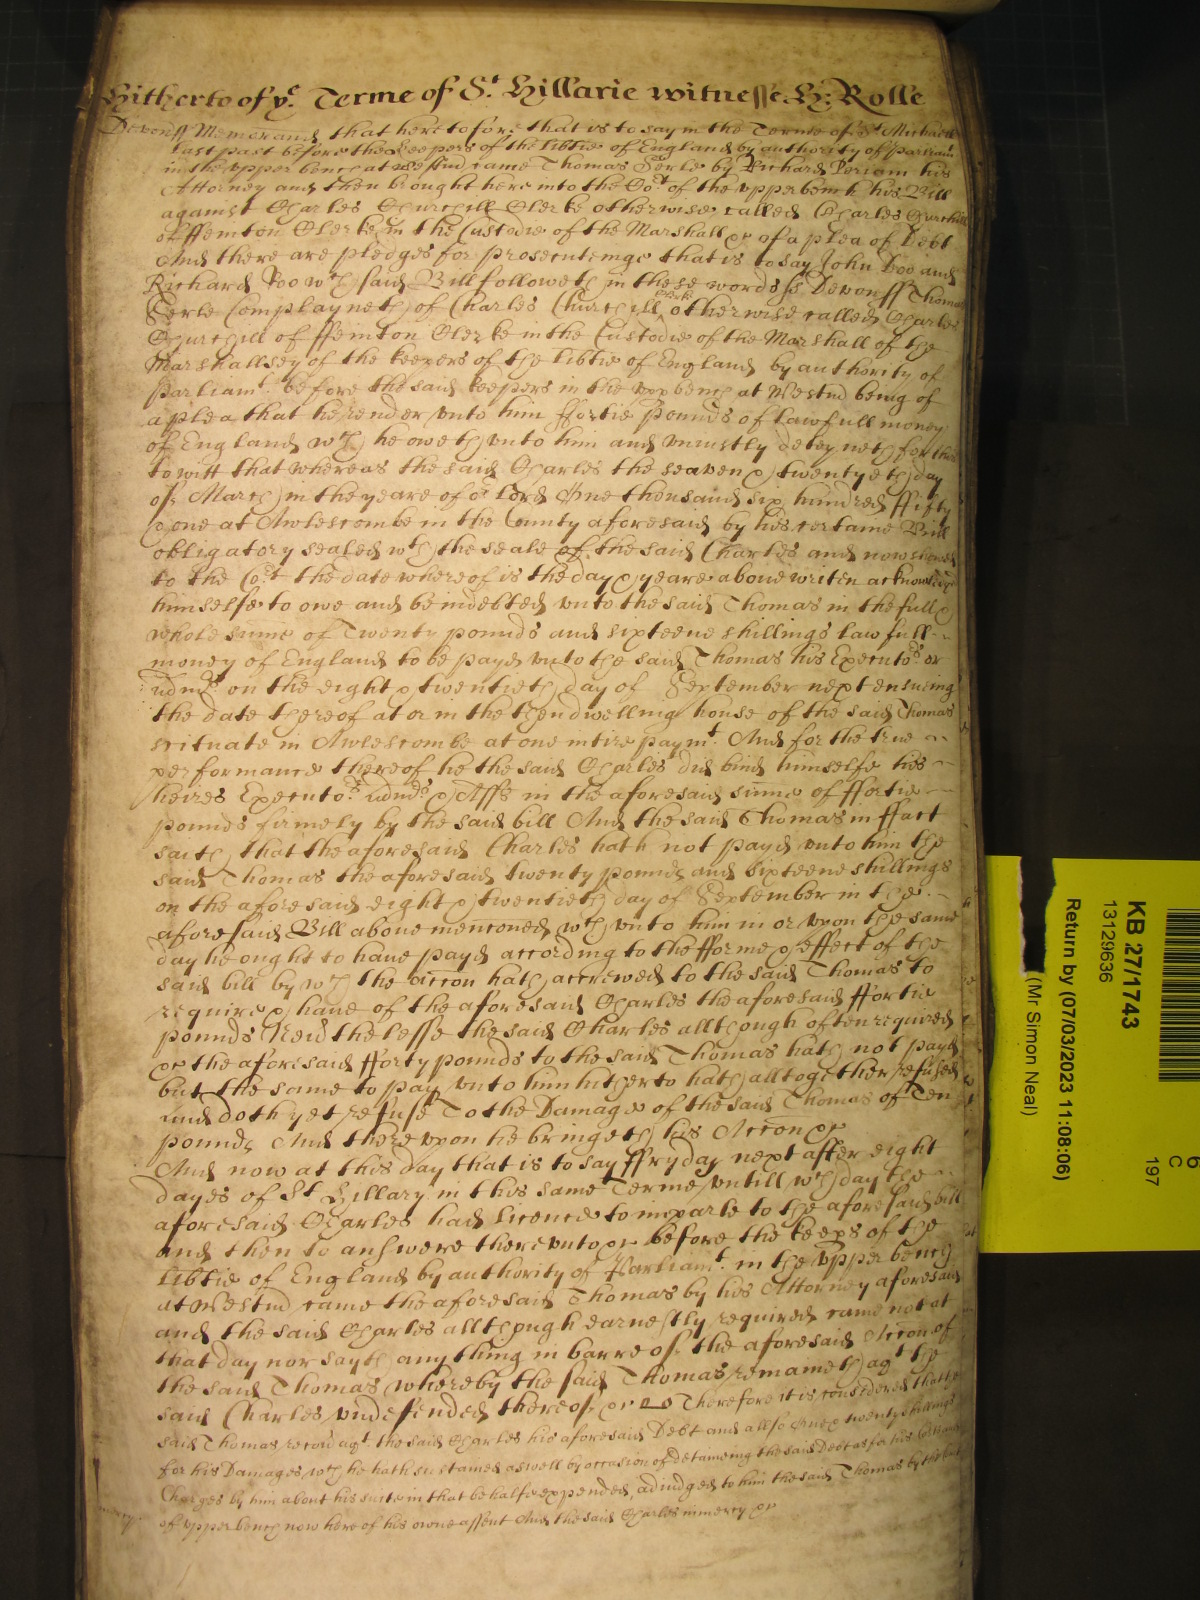 Hitherto of ye Terme of St Hillarie witnesse H: Rolle
Devonss Memorand that heretofore that is to say in the Terme of St Michaell
last past before the Keepers of the libtie of England by authority of Parliam
in the upper bench at Westmd came Thomas Serle by Richard Persam his
Attorney and then brought here into the Cort of the upper bench his Bill
against Charles Churchill Clerke otherwise called Charles Churchill
of ffeniton Clerke in the Custodie of the Marshall &c of a plea of Debt
And there are pledges for prosecuteinge that is to say John Doo and
Richard Roo wch said Bill followeth in these words ss Devonss Thomas
Serle Complayneth of Charles Churchill Clerk otherwise called Charles
Churchill of ffeniton Clerke in the Custodie of the Marshall of the
Marshallsey of the keepers of the libtie of England by authority of
Parliamt before the said keepers in the upp bench at Westmd being of
a plea that he render unto him ffortie pounds of lawfull money
of England wch he oweth unto him and uniustly deteyneth for that
to witt that whereas the said Charles the seaven & twentyeth day
of March in the yeare of or Lord One thousand six hundred ffifty
& one at Awlescombe in the County aforesaid by his certaine Bill
obligatory sealed wth the seale of the said Charles and now shewed
to the Cort the date whereof is the day & yeare above writen acknowledge
himselfe to owe and be indebted unto the said Thomas in the full &
whole sume of Twenty pounds and sixteene shillings lawfull
money of England to be payd unto the said Thomas his Executors or
Admrs on the eight & twentieth day of September next ensueing
the date thereof at or in the then dwelling house of the said Thomas
scituate in Awlescombe at one intire paymt. And for the true
performance thereof he the said Charles did bind himselfe his
heires Executors Admrs & Asss in the aforesaid sume of ffortie
pounds firmely by the said bill And the said Thomas in ffact
saith that the aforesaid Charles hath not payd unto him the
said Thomas the aforesaid twenty pounds and sixteene shillings
on the aforesaid eight & twentieth day of September in the
aforesaid Bill above menconed wch unto him in or upon the same
day he ought to have payd according to the fforme & effect of the
said bill by wch the accon hath accrewed to the said Thomas to
require & have of the aforesaid Charles the aforesaid ffortie
pounds Nevthelesse the said Charles allthough often required
&c the aforesaid fforty pounds to the said Thomas hath not payd
but the same to pay unto him hitherto hath alltogether refused
And doth yet refuse To the Damage of the said Thomas of Ten
pounds And thereupon he bringeth his Accon &c
And now at this day that is to say ffryday next after eight
dayes of St Hillary in this same Terme untill wch day the
aforesaid Charles had licence to imparle to the aforesaid bill
and then to answere thereunto &c before the keeps of the
libtie of England by authority of Parliamt. in the upper bench
at Westmd came the aforesaid Thomas by his Attorney aforesaid
and the said Charles allthough earnestly required came not at
that day nor sayth any thing in barre of the aforesaid Accon of
the said Thomas whereby the said Thomas remaineth agt the
said Charles undeffended thereof &c Therefore it is considered that the
said Thomas recov agt. the said Charles his aforesaid Debt and allso twenty shillings
for his Damages wch he hath sustained aswell by occasion of detaineing the said Debt as for his
Charges by him about his suite in that behalfe expended, adiudged to him the said Thomas by the
of upper bench now here of his owne assent And the said Charles in mercy &c
KB 27/1743
13129636
Return by (07/03/2023 11:08:06)
(Mr Simon Neal)
6
C
197